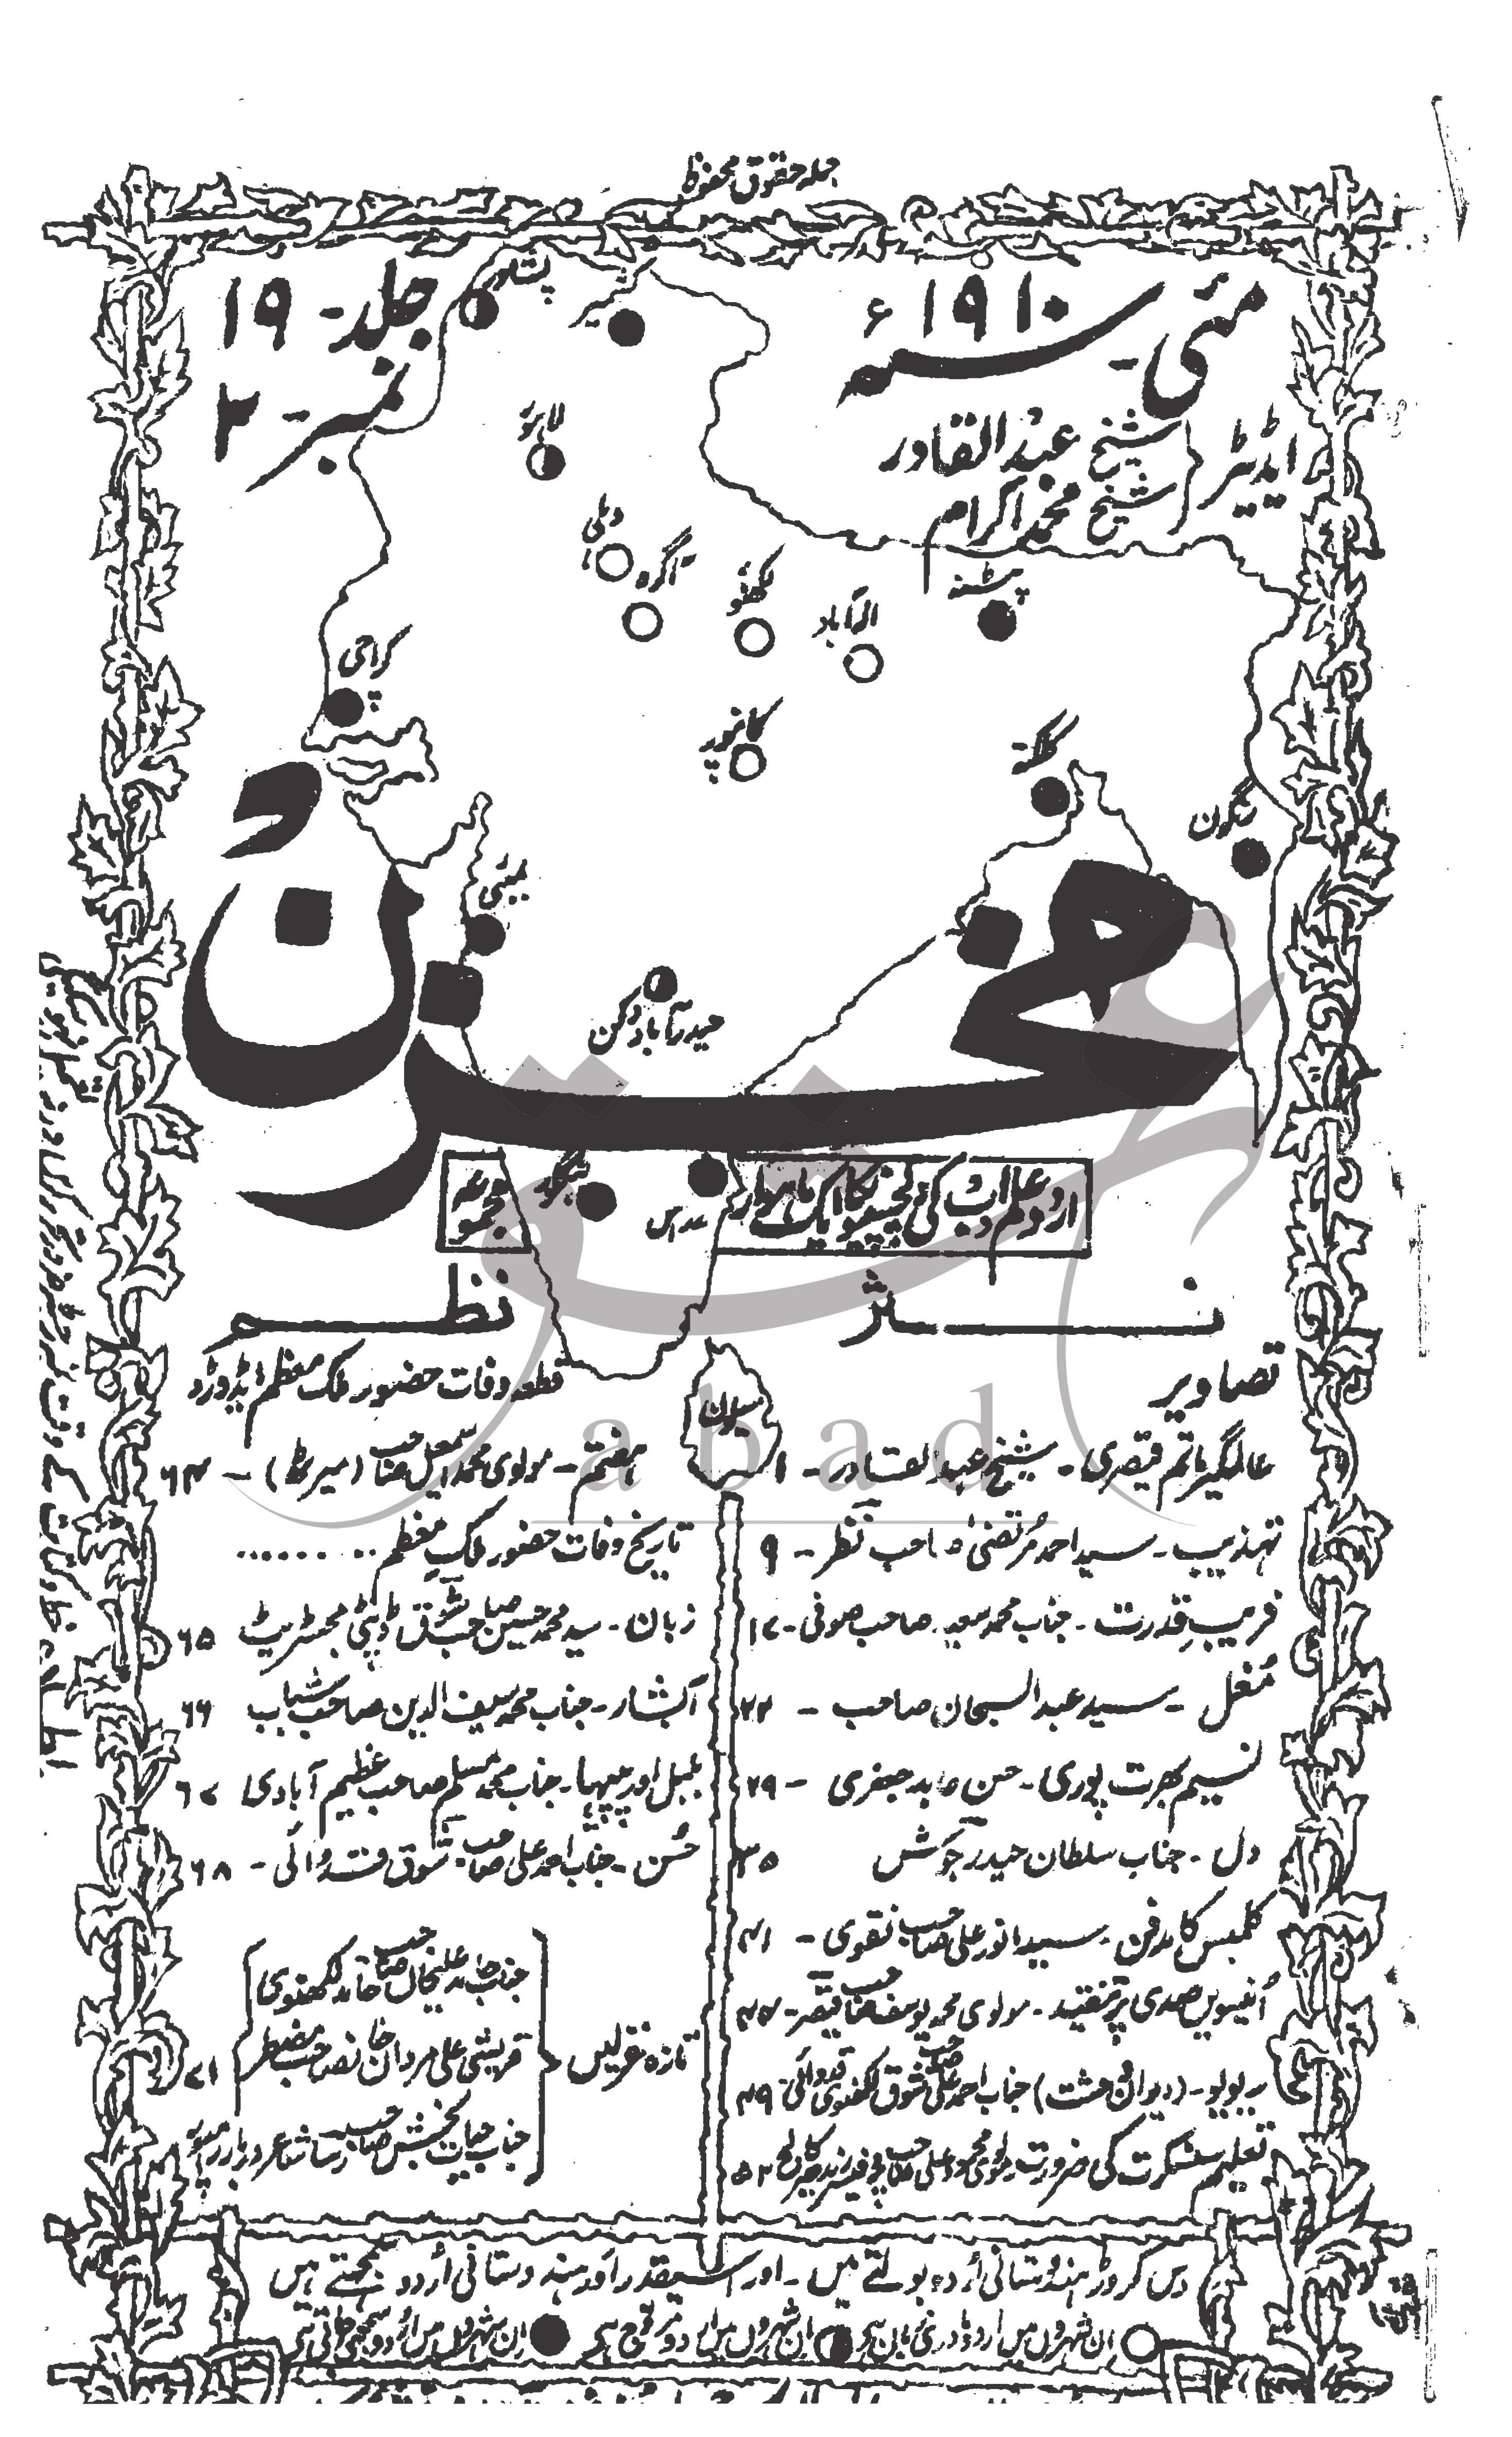 جملہ حقوق محفوظ
مئی سنہ ۱۹۱۰ء
جلد - ۱۹
نمبر - ۲
ایڈیٹر
شیخ عبدالقادر
شیخ محمد اکرام
پشاور
لاہور
دہلی
آگرہ
لکھنؤ
الہ آباد
پٹنہ
کراچی
کانپور
کلکتہ
رنگون
بمبئی
حیدرآباد دکن
مخزن
مدراس
اردو علم ادب کی دلچسپیوں کا ایک ماہوار
مجموعہ
سیلون
نثر
تصاویر
عالمگیر ماتم قیصری - شیخ عبدالقادر - ۱
تہذیب - سید احمد مرتضیٰ صاحب نظر - ۹
فریبِ قدرت - جناب محمد سعید صاحب صوفی - ۱۷
مُغل - سید عبدالسبحان صاحب - ۲۲
نسیم بھرت پوری - حسن عابد جعفری - ۲۹
دل - جناب سلطان حیدر جوش ۳۵
کلمبس کا مدفن - سید انور علی صاحب نقوی - ۴۱
اُنیسویں صدی پر تنقید - مولوی محمد یوسف صاحب قیصر - ۴۷
ریویو - (دیوان وحشت) جناب احمد علی صاحب شوق لکھنوی قدوائی ۴۹
تعلیم سنسکرت کی ضرورت - مولوی محمود علی صاحب پروفیسر رندھیر کالج ۵۲
نظم
قطعہ وفات حضور ملک معظم ایڈورڈ
ہفتم - مولوی محمد اسمعیل صاحب (میرٹھ) - ۶۴
تاریخ وفات حضور ملکِ معظم ........
زبان - سید محمد حسین صاحب شوق ڈپٹی مجسٹریٹ ۶۵
آبشار - جناب محمد سیف الدین صاحب شباب ۶۶
بلبل اور پپیہا - جناب محمد مسلم صاحب عظیم آبادی ۶۷
حُسن - جناب احمد علی صاحب شوق قدوائی - ۶۸
تازہ غزلیں
جناب حامد علیخاں صاحب حامد لکھنوی
قریشی علی مردان خانصاحب مضطر
جناب حیات بخش صاحب رسا شاعر دربار رامپور
۷۱
دس کروڑ ہندوستانی اُردو بولتے ہیں - اور اسیقدر اَور ہندوستانی اُردو سمجھتے ہیں
ان شہروں میں اردو مادری زبان ہے ان شہروں میں اردو مروج ہے ان شہروں میں اُردو سمجھی جاتی ہے
abad